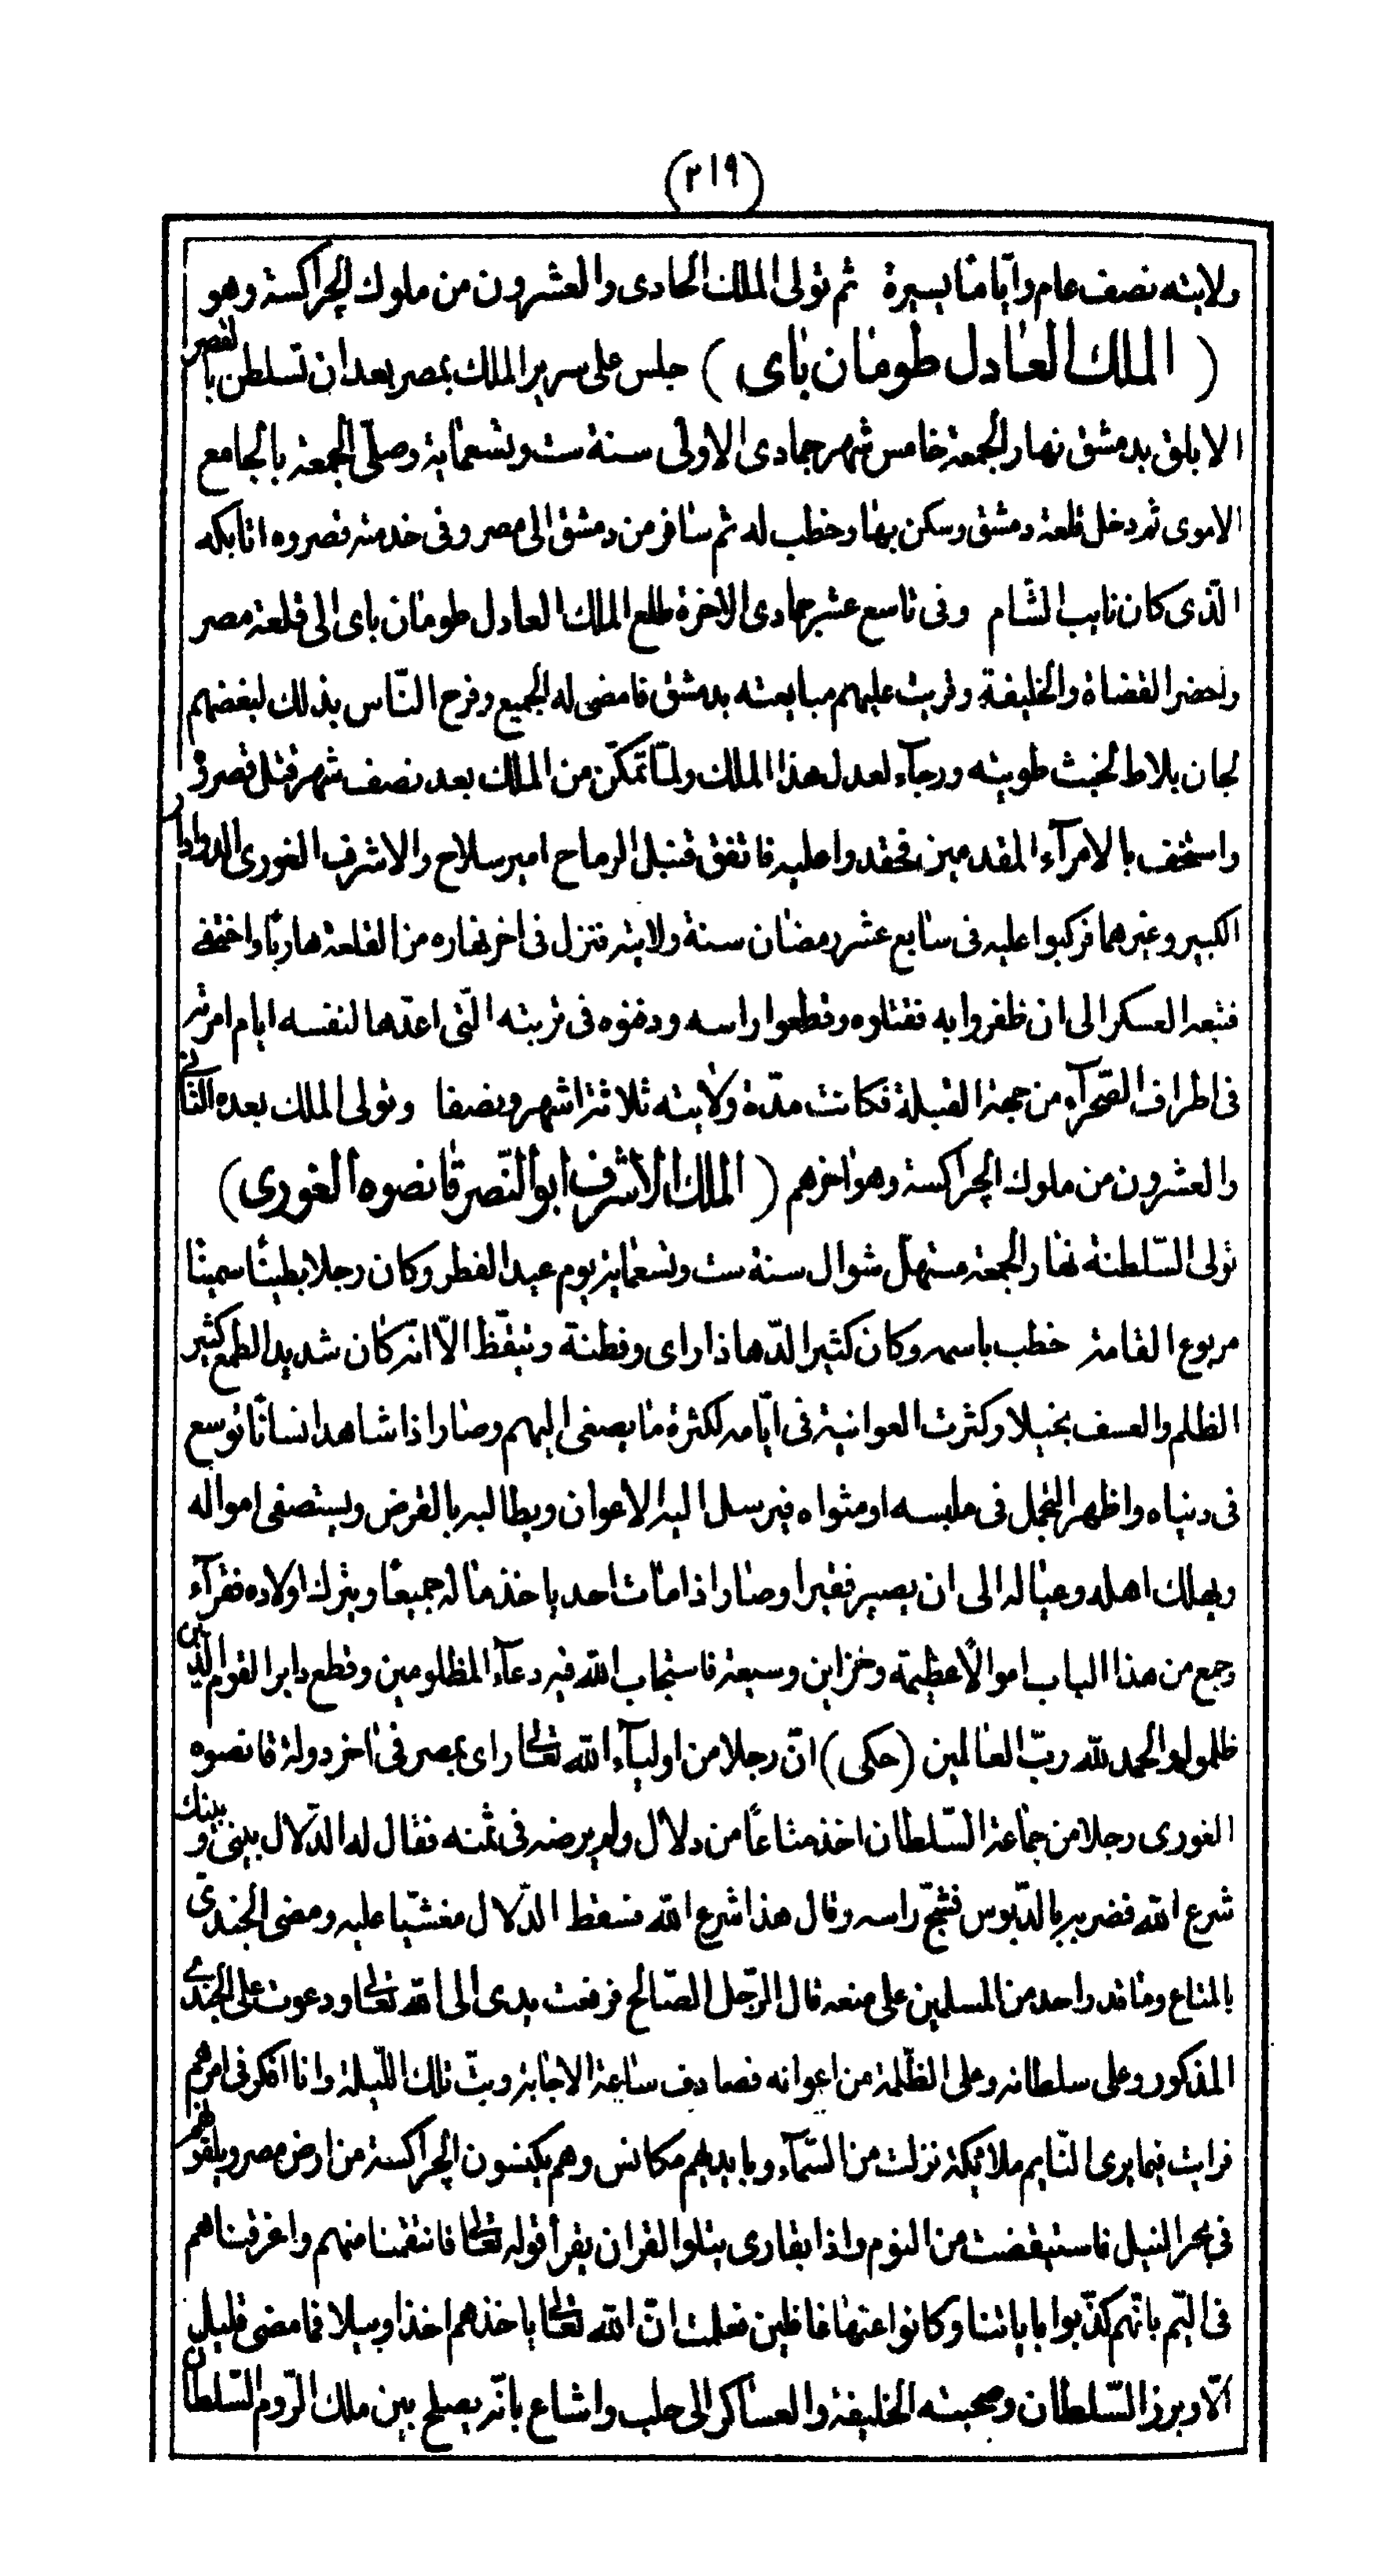 (٢١٩)
ولايته نصف عام وايّامًا يسيرة ثم تولى الملك الحادى والعشرون من ملوك الجراكسة وهو
(الملك العادل طومان باى) جلس على سرير الملك بمصر بعد ان تسلطن بالقصر
الابلق بدمشق نهار الجمعة خامس شهر جمادى الاولى سنة ست وتسعماية وصلّى الجمعة بالجامع
الاموى ثم دخل قلعة دمشق وسكن بها وخطب له ثم سافر من دمشق الى مصر وفى خدمته قصروه اتابكه
الّذى كان نايب الشام وفى تاسع عشر جمادى الاخرة طلع الملك العادل طومان باى الى قلعة مصر
واحضر القضاة والخليفة وقريت عليهم مبايعته بدمشق فامضى له الجميع وفرح النّاس بذلك لبغضهم
لجان بلاط لخبث طويته ورجآء لعدل هذا الملك ولمّا تمكّن من الملك بعد نصف شهر قتل قصروه
واستخف بالامرآء المقدمين فحقدوا عليه فاتفق قنبل الرماح امير سلاح والاشرف الغورى الدوادار
الكبير وغيرهما فركبوا عليه فى سابع عشر رمضان سنة ولايته فنزل فى اخر نهاره من القلعة هاربًا واختفى
فتبعه العسكر الى ان ظفروا به فقتلوه وقطعوا راسه ودفنوه فى تربته الّتى اعدّها لنفسه ايام امرته
فى اطراف الصّحرآء من جهة القبلة فكانت مدّة ولايته ثلاثة اشهر ونصفا وتولى الملك بعده الثانى
والعشرون من ملوك الجراكسة وهو اخرهم (الملك الاشرف ابو النّصر قانصوه الغورى)
تولى السّلطنة نهار الجمعة مستهلّ شوال سنة ست وتسعماية يوم عيد الفطر وكان رجلا بطينًا سمينًا
مربوع القامة خطب باسمه وكان كثير الدّها ذا راى وفطنة وتيقّظ الاّ انّه كان شديد الطمع كثير
الظلم والعسف بخيلا وكثرت العوانية فى ايّامه لكثرة ما يصغى اليهم وصار اذا شاهد انسانًا توسع
فى دنياه واظهر التجمل فى ملبسه او مثواه فيرسل اليه الاعوان ويطالبه بالقرض ويستصفى امواله
ويهلك اهله وعياله الى ان يصير فقيرا وصار اذا مات احد ياخذ ماله جميعًا ويترك اولاده فقرآء
وجمع من هذا الباب اموالًا عظيمة وخزاين وسيعة فاستجاب الله فيه دعآء المظلومين وقطع دابر القوم الّذين
ظلموا والحمد لله ربّ العالمين (حكى) انّ رجلا من اوليآء الله تعالى راى بمصر فى اخر دولة قانصوه
الغورى رجلا من جماعة السّلطان اخذ متاعًا من دلال ولم يرضه فى ثمنه فقال له الدّلال بينى وبينك
شرع الله فضربه بالدّبوس فشجّ راسه وقال هذا شرع الله فسقط الدّلال مغشيّا عليه ومضى الجندىّ
بالمتاع وما قدر واحد من المسلمين على منعه قال الرّجل الصّالح فرفعت يدى الى الله تعالى ودعوت على الجندى
المذكور وعلى سلطانه وعلى الظّلمة من اعوانه فصادف ساعة الاجابة وبتّ تلك اللّيلة وانا افكر فى امرهم
فرايت فيما يرى النّايم ملائكة نزلت من السّمآء وبايديهم مكانس وهم يكنسون الجراكسة من ارض مصر ويلقونهم
فى بحر النيل فاستيقضت من النوم واذا بقارى يتلوا القران يقرأ قوله تعالى فانتقمنا منهم واغرقناهم
فى اليّم بانّهم كذّبوا باياتنا وكانوا عنها غافلين فعلمت انّ الله تعالى ياخذهم اخذا وبيلا فما مضى قليل
الّا وبرز السّلطان وصحبته الخليفة والعساكر الى حلب واشاع بانّه يصلح بين ملك الرّوم السّلطان